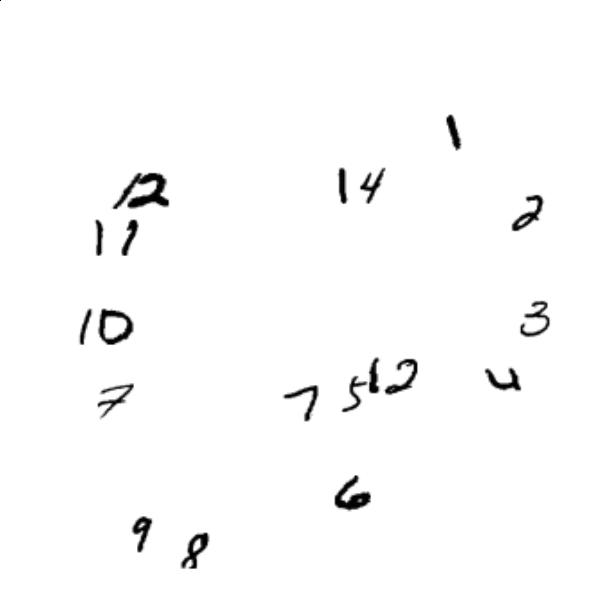 1
12 14
2
11
10 3
7 7 5 12 4
6
9 8